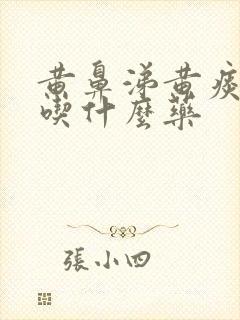 黄鼻涕黄痰
喫什麼藥
張小四